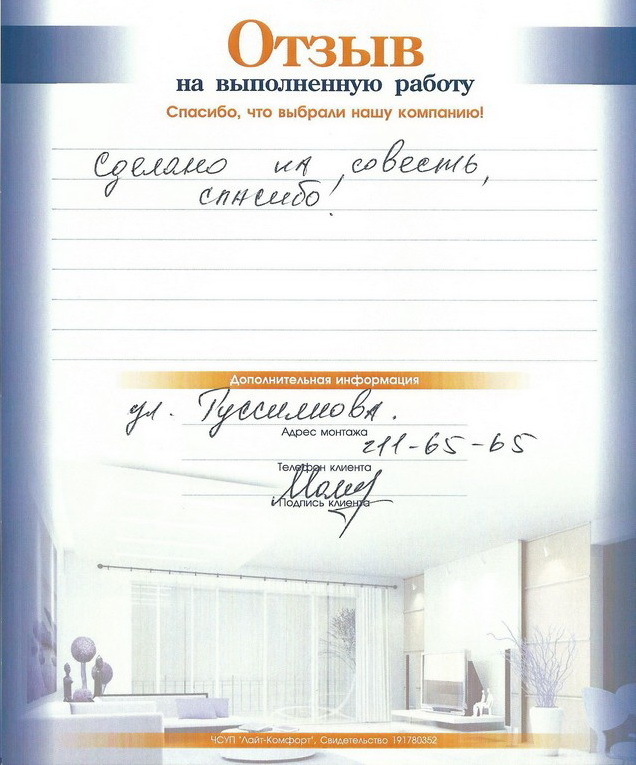 Отзыв
на выполненную работу
Спасибо, что выбрали нашу компанию!
Сделано на совесть,
спасибо!
Дополнительная информация
ул. Руссиянова.
Адрес монтажа
211-65-65
Телефон клиента
Подпись клиента
ЧСУП "Лайт-Комфорт", Свидетельство 191780352